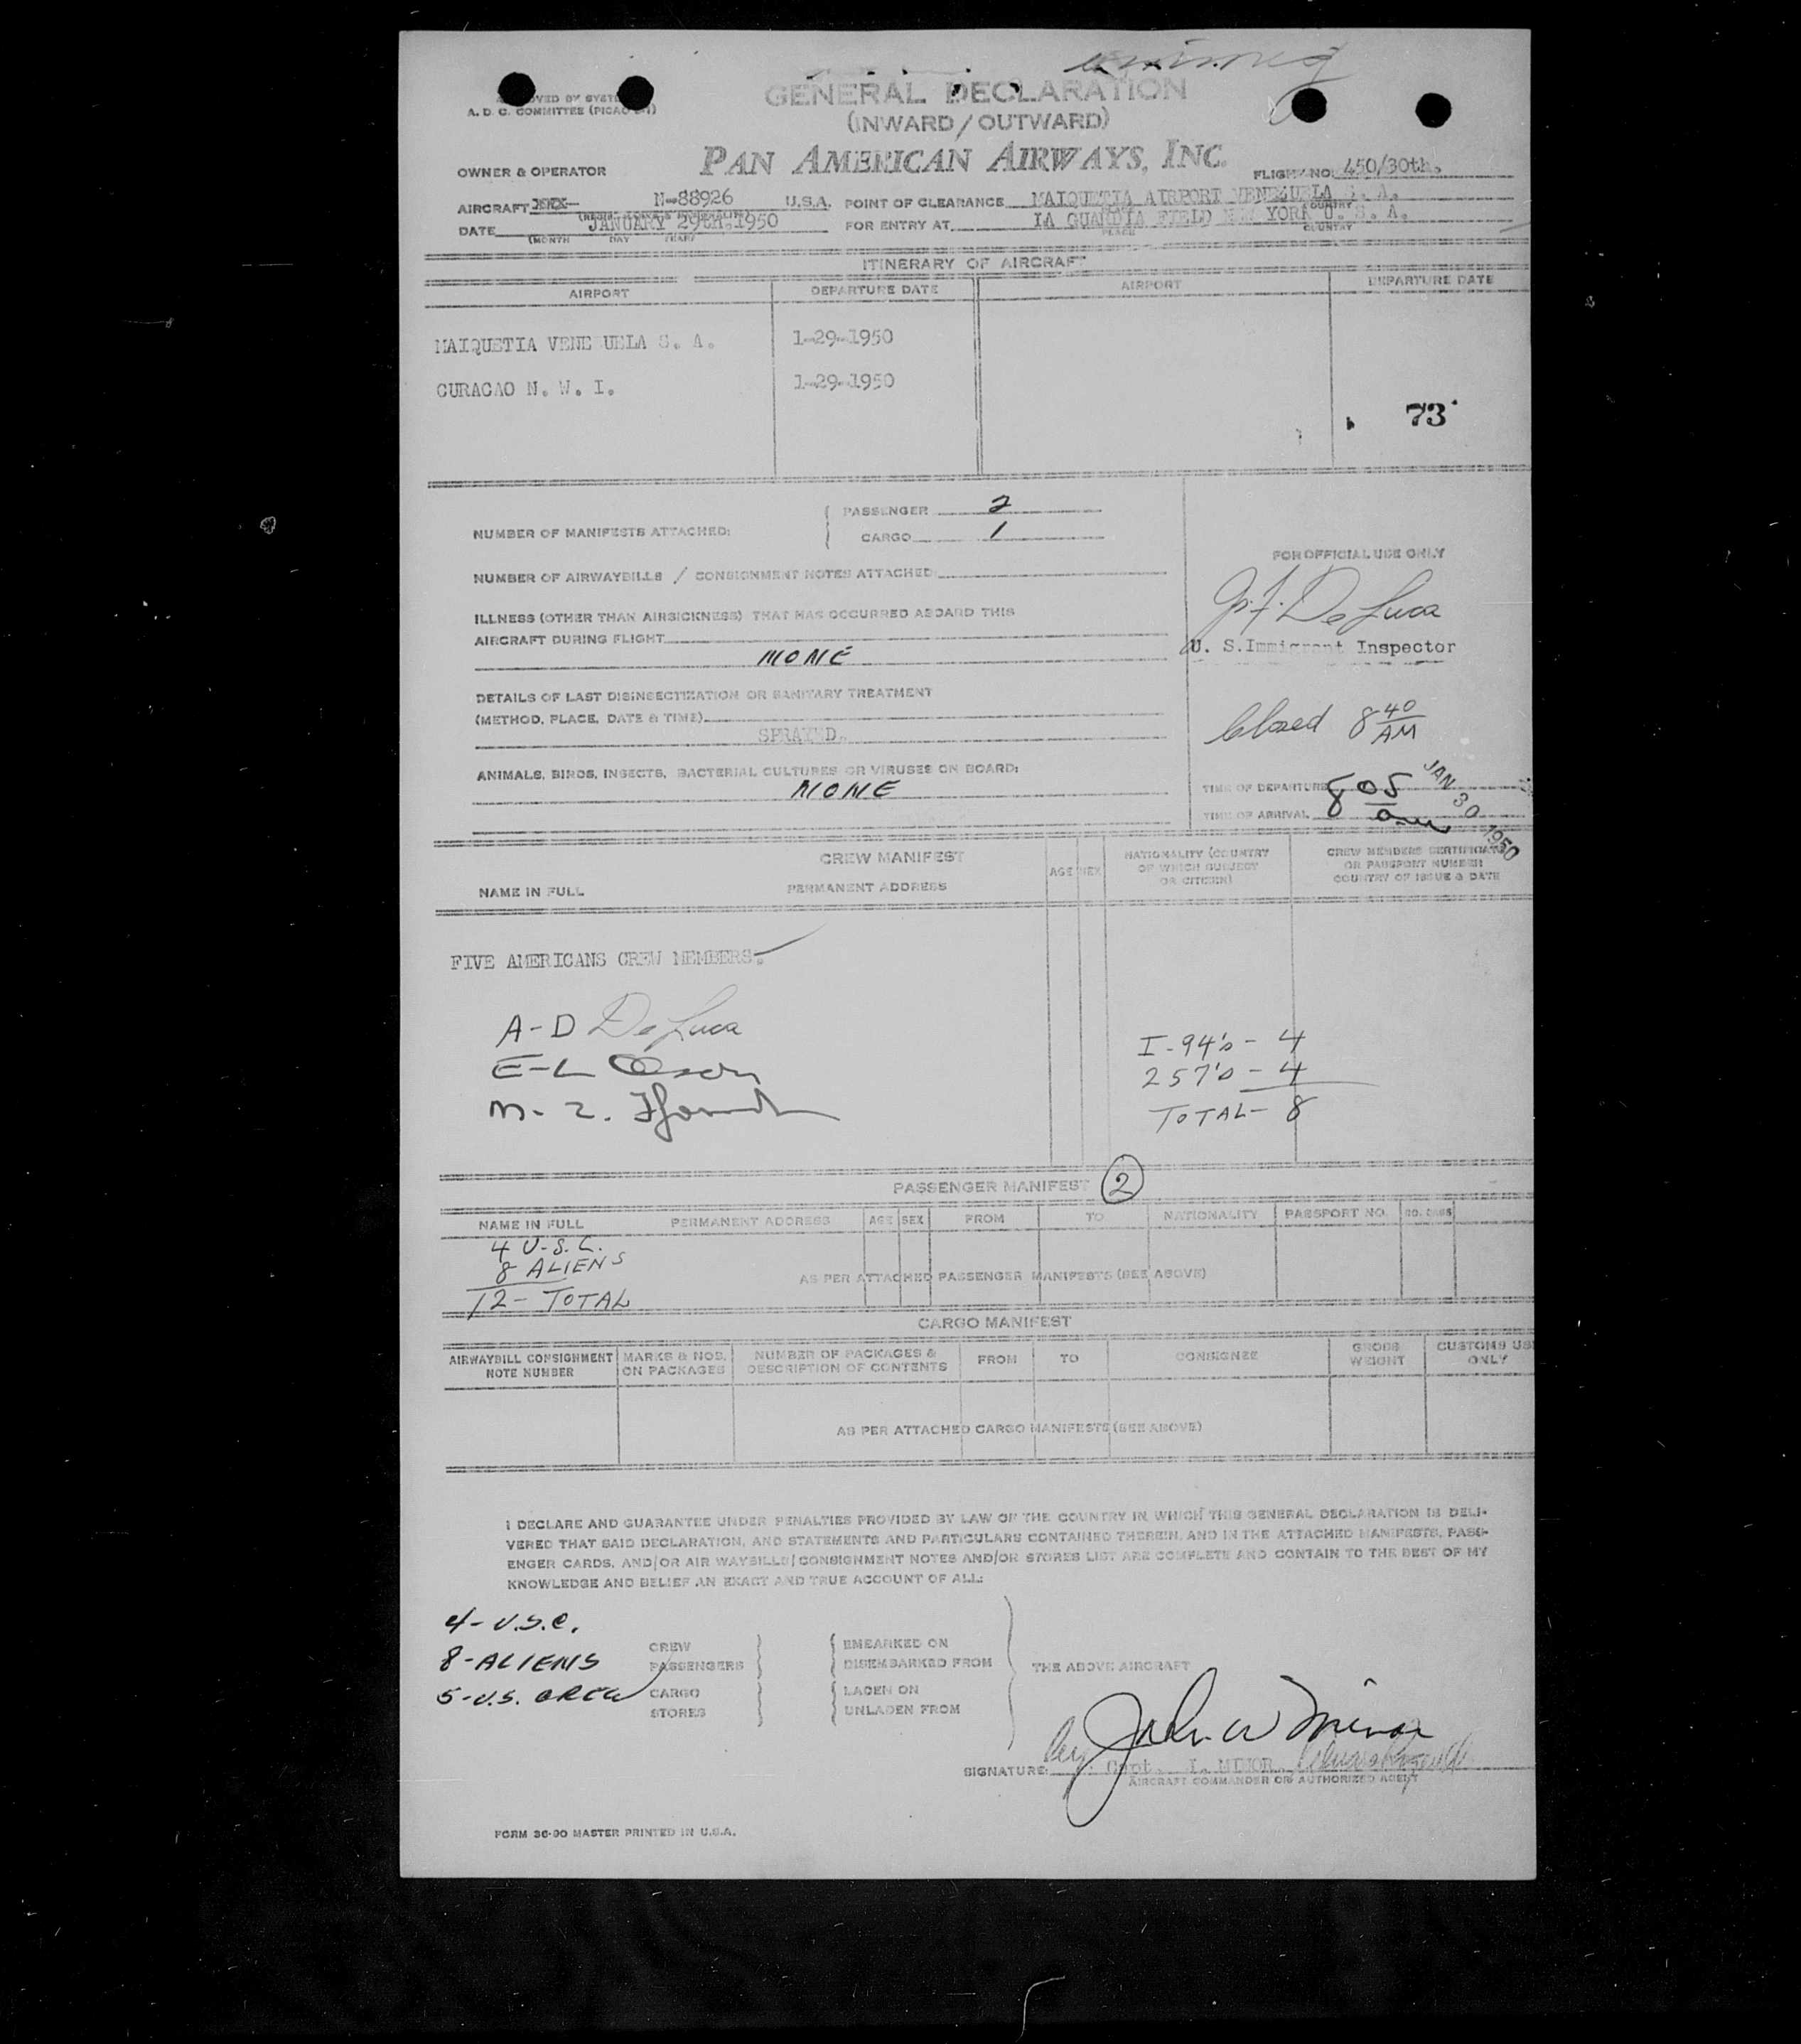 GENERAL DECLARATION
A. D. C. COMMITTEE (PICAO
(INWARD/OUTWARD)
PAN AMERICAN AIRWAYS, INC.
OWNER & OPERATOR
FLIGHT NO. 450/30th.
AIRCRAFT XXX- N-88926 U.S.A. POINT OF CLEARANCE MAIQUETIA AIRPORT VENEZUELA S. A.
DATE JANUARY 29th.1950 FOR ENTRY AT LA GUARDIA FIELD NEW YORK U. S. A.
(MONTH DAY YEAR) PLACE COUNTRY
ITINERARY OF AIRCRAFT
AIRPORT DEPARTURE DATE AIRPORT DEPARTURE DATE
MAIQUETIA VENEZUELA S. A. 1-29-1950
CURACAO N. W. I. 1-29-1950
73
NUMBER OF MANIFESTS ATTACHED: PASSENGER 2
CARGO 1
NUMBER OF AIRWAYBILLS / CONSIGNMENT NOTES ATTACHED:
ILLNESS (OTHER THAN AIRSICKNESS) THAT HAS OCCURRED ABOARD THIS
AIRCRAFT DURING FLIGHT
NONE
DETAILS OF LAST DISINSECTIZATION OR SANITARY TREATMENT
(METHOD, PLACE, DATE & TIME)
SPRAYED.
ANIMALS, BIRDS, INSECTS, BACTERIAL CULTURES OR VIRUSES ON BOARD:
NONE
FOR OFFICIAL USE ONLY
De Luca
U. S. Immigrant Inspector
Closed 8 40 AM
TIME OF DEPARTURE
TIME OF ARRIVAL 8 05 am
JAN 30 1950
CREW MANIFEST
NAME IN FULL PERMANENT ADDRESS AGE SEX NATIONALITY (COUNTRY OF WHICH SUBJECT OR CITIZEN) CREW MEMBERS CERTIFICATE OR PASSPORT NUMBER COUNTRY OF ISSUE & DATE
FIVE AMERICANS CREW MEMBERS.
A-D De Luca
E-L
M-2.
I-94's - 4
257's - 4
TOTAL - 8
PASSENGER MANIFEST 2
NAME IN FULL PERMANENT ADDRESS AGE SEX FROM TO NATIONALITY PASSPORT NO.
4 U.S.C.
8 ALIENS
12 - TOTAL
AS PER ATTACHED PASSENGER MANIFESTS (SEE ABOVE)
CARGO MANIFEST
AIRWAYBILL CONSIGNMENT NOTE NUMBER MARKS & NOS. ON PACKAGES NUMBER OF PACKAGES & DESCRIPTION OF CONTENTS FROM TO CONSIGNEE GROSS WEIGHT CUSTOMS USE ONLY
AS PER ATTACHED CARGO MANIFESTS (SEE ABOVE)
I DECLARE AND GUARANTEE UNDER PENALTIES PROVIDED BY LAW OF THE COUNTRY IN WHICH THIS GENERAL DECLARATION IS DELI-
VERED THAT SAID DECLARATION, AND STATEMENTS AND PARTICULARS CONTAINED THEREIN, AND IN THE ATTACHED MANIFESTS, PASS-
ENGER CARDS, AND/OR AIR WAYBILLS/CONSIGNMENT NOTES AND/OR STORES LIST ARE COMPLETE AND CONTAIN TO THE BEST OF MY
KNOWLEDGE AND BELIEF AN EXACT AND TRUE ACCOUNT OF ALL:
4- U.S.C.
8-ALIENS
5-U.S. CREW
CREW EMBARKED ON
PASSENGERS DISEMBARKED FROM THE ABOVE AIRCRAFT
CARGO LADEN ON
STORES UNLADEN FROM
John W Minor
SIGNATURE: by Capt. I. MINOR.
AIRCRAFT COMMANDER OR AUTHORIZED AGENT
FORM 36-90 MASTER PRINTED IN U.S.A.